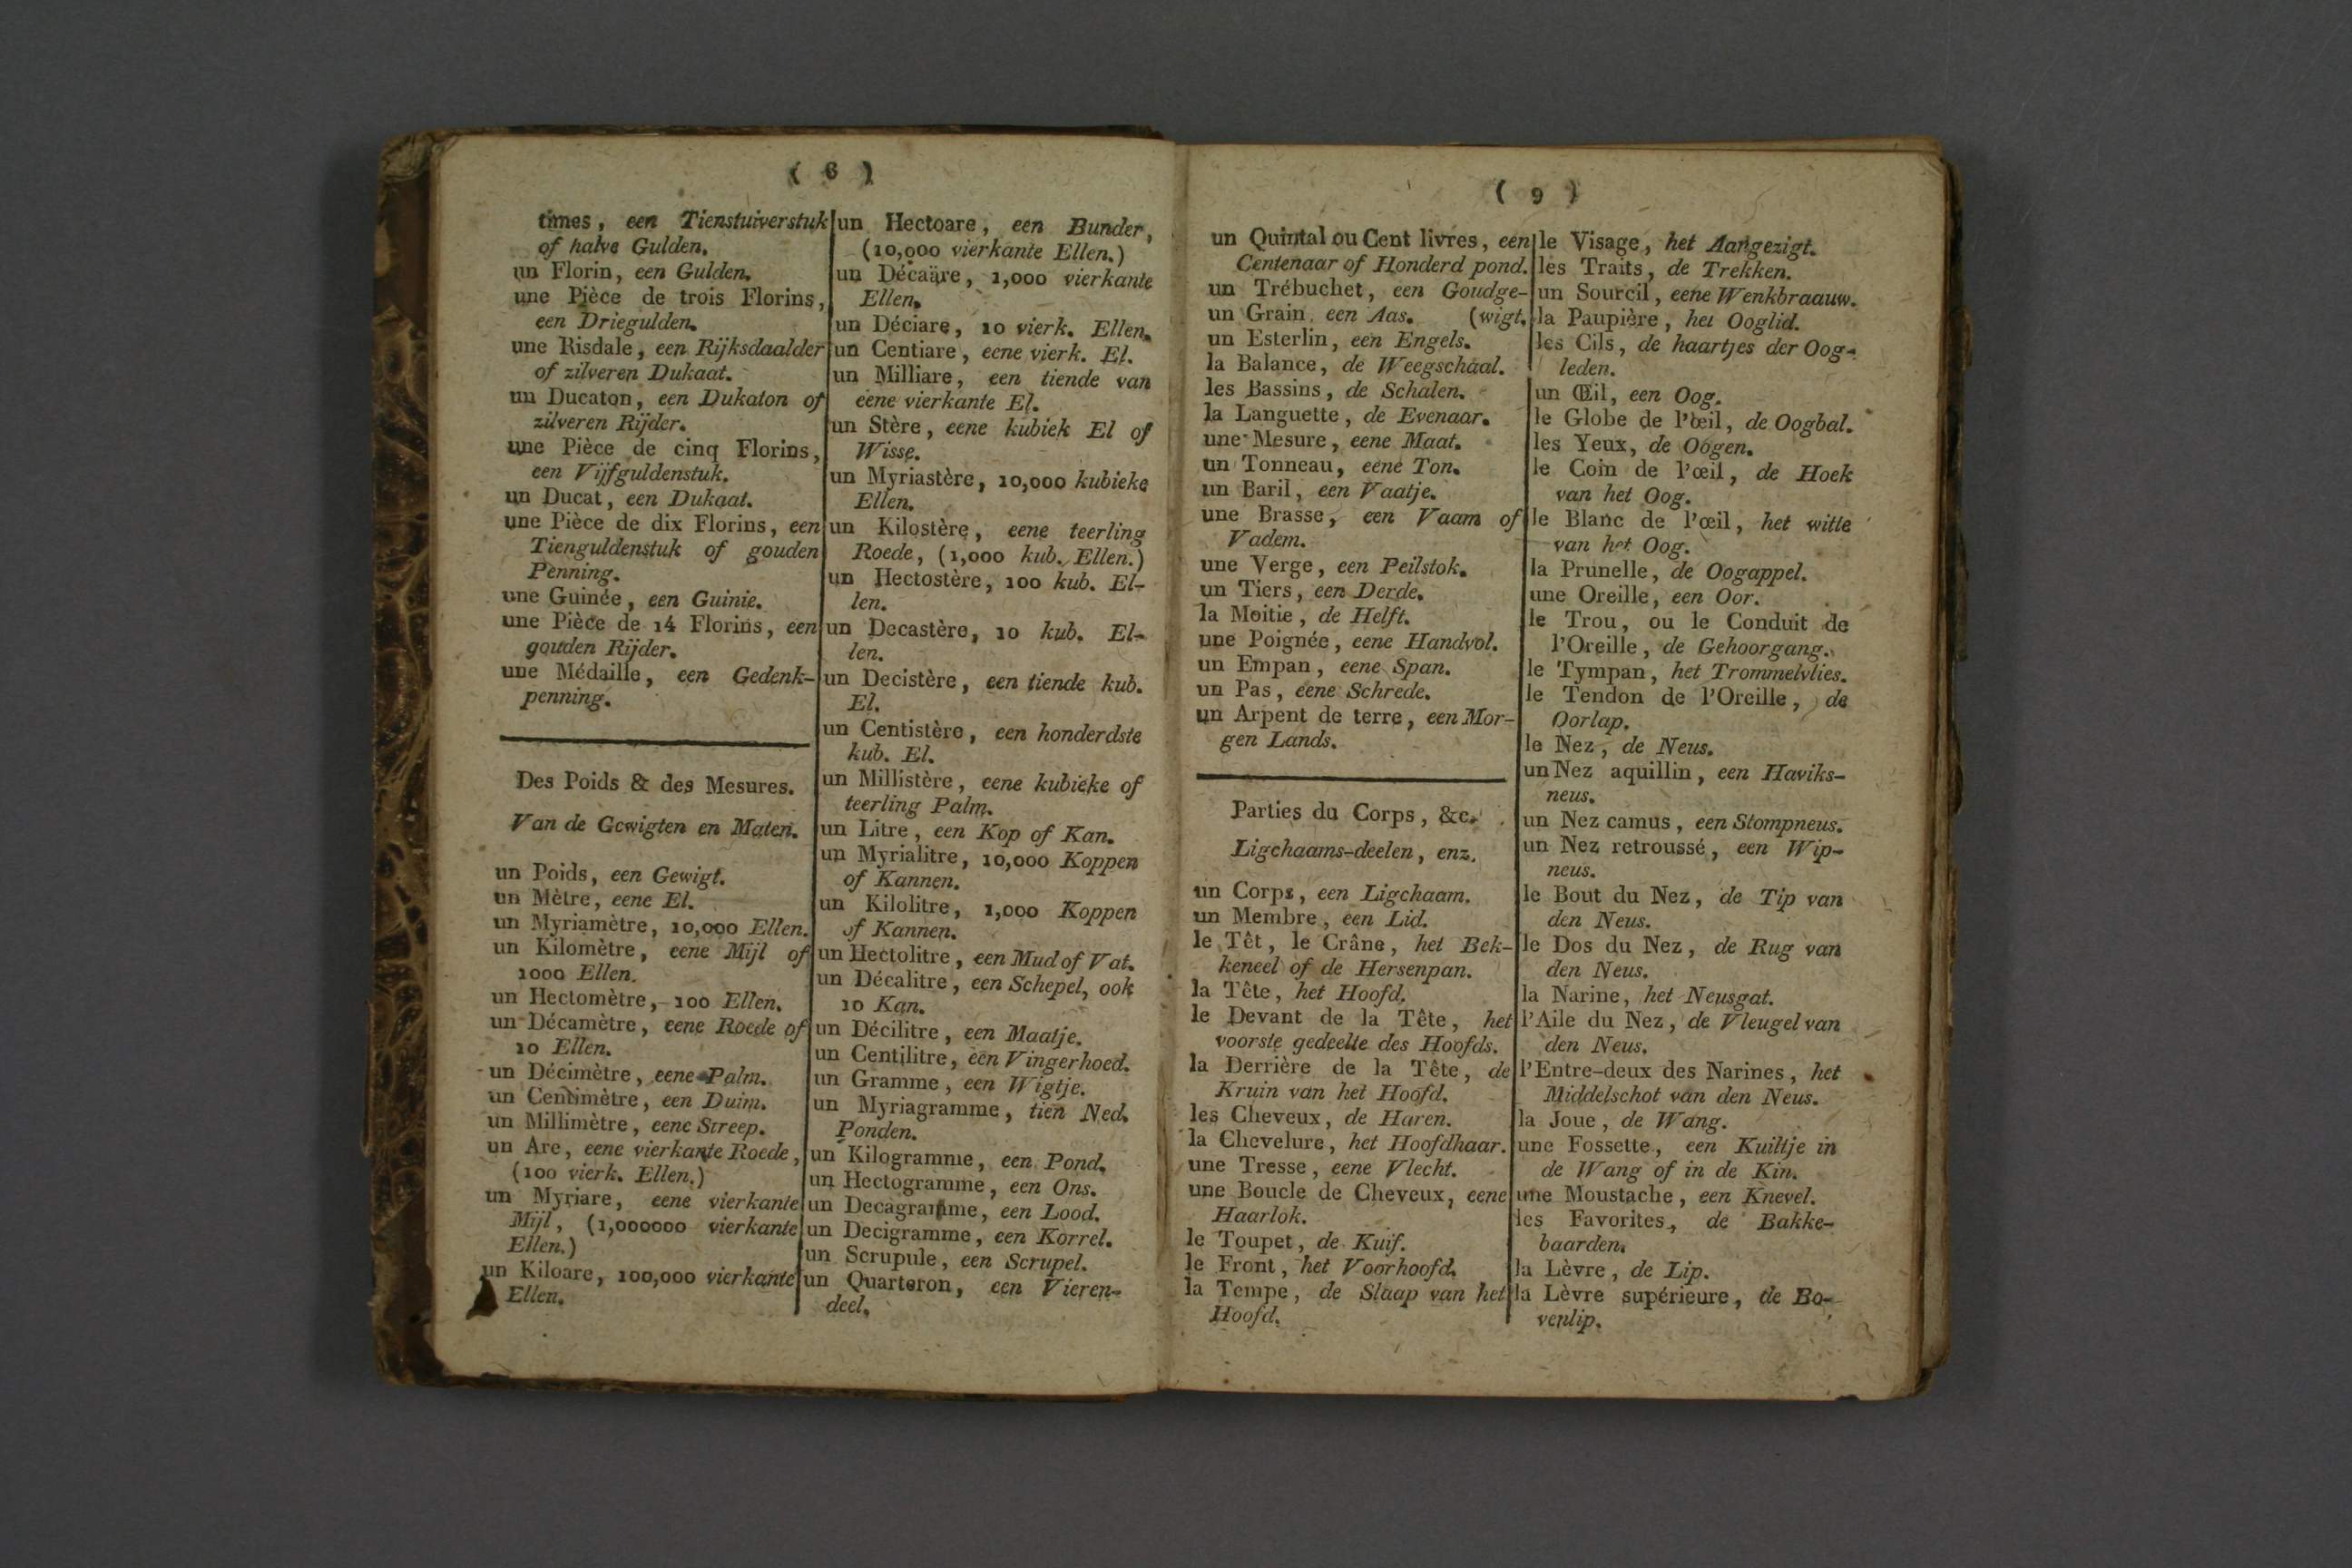 ( 8 )
times, een Tienstuiverstuk
of halve Gulden.
un Florin, een Gulden.
une Pièce de trois Florins,
een Driegulden.
une Risdale, een Rijksdaalder
of zilveren Dukaat.
un Ducaton, een Dukaton of
zilveren Rijder.
une Pièce de cinq Florins,
een Vijfguldenstuk.
un Ducat, een Dukaat.
une Pièce de dix Florins, een
Tienguldenstuk of gouden
Penning.
une Guinée, een Guinie.
une Pièce de 14 Florins, een
gouden Rijder.
une Médaille, een Gedenk-
penning.
Des Poids & des Mesures.
Van de Gewigten en Maten.
un Poids, een Gewigt.
un Mètre, eene El.
un Myriamètre, 10,000 Ellen.
un Kilomètre, eene Mijl of
1000 Ellen.
un Hectomètre, 100 Ellen.
un Décamètre, eene Roede of
10 Ellen.
un Décimètre, eene Palm.
un Centimètre, een Duim.
un Millimètre, eene Streep.
un Are, eene vierkante Roede,
(100 vierk. Ellen.)
un Myriare, eene vierkante
Mijl, (1,000000 vierkante
Ellen.)
un Kiloare, 100,000 vierkante
Ellen.
un Hectoare, een Bunder,
(10,000 vierkante Ellen.)
un Décaäre, 1,000 vierkante
Ellen.
un Déciare, 10 vierk. Ellen.
un Centiare, eene vierk. El.
un Milliare, een tiende van
eene vierkante El.
un Stère, eene kubiek El of
Wisse.
un Myriastère, 10,000 kubieke
Ellen.
un Kilostère, eene teerling
Roede, (1,000 kub. Ellen.)
un Hectostère, 100 kub. El-
len.
un Decastère, 10 kub. El-
len.
un Decistère, een tiende kub.
El.
un Centistère, een honderdste
kub. El.
un Millistère, eene kubieke of
teerling Palm.
un Litre, een Kop of Kan.
un Myrialitre, 10,000 Koppen
of Kannen.
un Kilolitre, 1,000 Koppen
of Kannen.
un Hectolitre, een Mud of Vat.
un Décalitre, een Schepel, ook
10 Kan.
un Décilitre, een Maatje.
un Centilitre, een Vingerhoed.
un Gramme, een Wigtje.
un Myriagramme, tien Ned.
Ponden.
un Kilogramme, een Pond.
un Hectogramme, een Ons.
un Decagramme, een Lood.
un Decigramme, een Korrel.
un Scrupule, een Scrupel.
un Quarteron, een Vieren-
deel.
( 9 )
un Quintal ou Cent livres, een
Centenaar of Honderd pond.
un Trébuchet, een Goudge-
un Grain, een Aas. (wigt.
un Esterlin, een Engels.
la Balance, de Weegschaal.
les Bassins, de Schalen.
la Languette, de Evenaar.
une Mesure, eene Maat.
un Tonneau, eene Ton.
un Baril, een Vaatje.
une Brasse, een Vaam of
Vadem.
une Verge, een Peilstok.
un Tiers, een Derde.
la Moitie, de Helft.
une Poignée, eene Handvol.
un Empan, eene Span.
un Pas, eene Schrede.
un Arpent de terre, een Mor-
gen Lands.
Parties du Corps, &c.
Ligchaams-deelen, enz.
un Corps, een Ligchaam.
un Membre, een Lid.
le Têt, le Crâne, het Bek-
keneel of de Hersenpan.
la Tête, het Hoofd.
le Devant de la Tête, het
voorste gedeelte des Hoofds.
la Derrière de la Tête, de
Kruin van het Hoofd.
les Cheveux, de Haren.
la Chevelure, het Hoofdhaar.
une Tresse, eene Vlecht.
une Boucle de Cheveux, eene
Haarlok.
le Toupet, de Kuif.
le Front, het Voorhoofd.
la Tempe, de Slaap van het
Hoofd.
le Visage, het Aangezigt.
les Traits, de Trekken.
un Sourcil, eene Wenkbraauw.
la Paupière, het Ooglid.
les Cils, de haartjes der Oog-
leden.
un Œil, een Oog.
le Globe de l'œil, de Oogbal.
les Yeux, de Oogen.
le Coin de l'œil, de Hoek
van het Oog.
le Blanc de l'œil, het witte
van het Oog.
la Prunelle, de Oogappel.
une Oreille, een Oor.
le Trou, ou le Conduit de
l'Oreille, de Gehoorgang.
le Tympan, het Trommelvlies.
le Tendon de l'Oreille, de
Oorlap.
le Nez, de Neus.
un Nez aquillin, een Haviks-
neus.
un Nez camus, een Stompneus.
un Nez retroussé, een Wip-
neus.
le Bout du Nez, de Tip van
den Neus.
le Dos du Nez, de Rug van
den Neus.
la Narine, het Neusgat.
l'Aile du Nez, de Vleugel van
den Neus.
l'Entre-deux des Narines, het
Middelschot van den Neus.
la Joue, de Wang.
une Fossette, een Kuiltje in
de Wang of in de Kin.
une Moustache, een Knevel.
les Favorites, de Bakke-
baarden.
la Lèvre, de Lip.
la Lèvre supérieure, de Bo-
venlip.